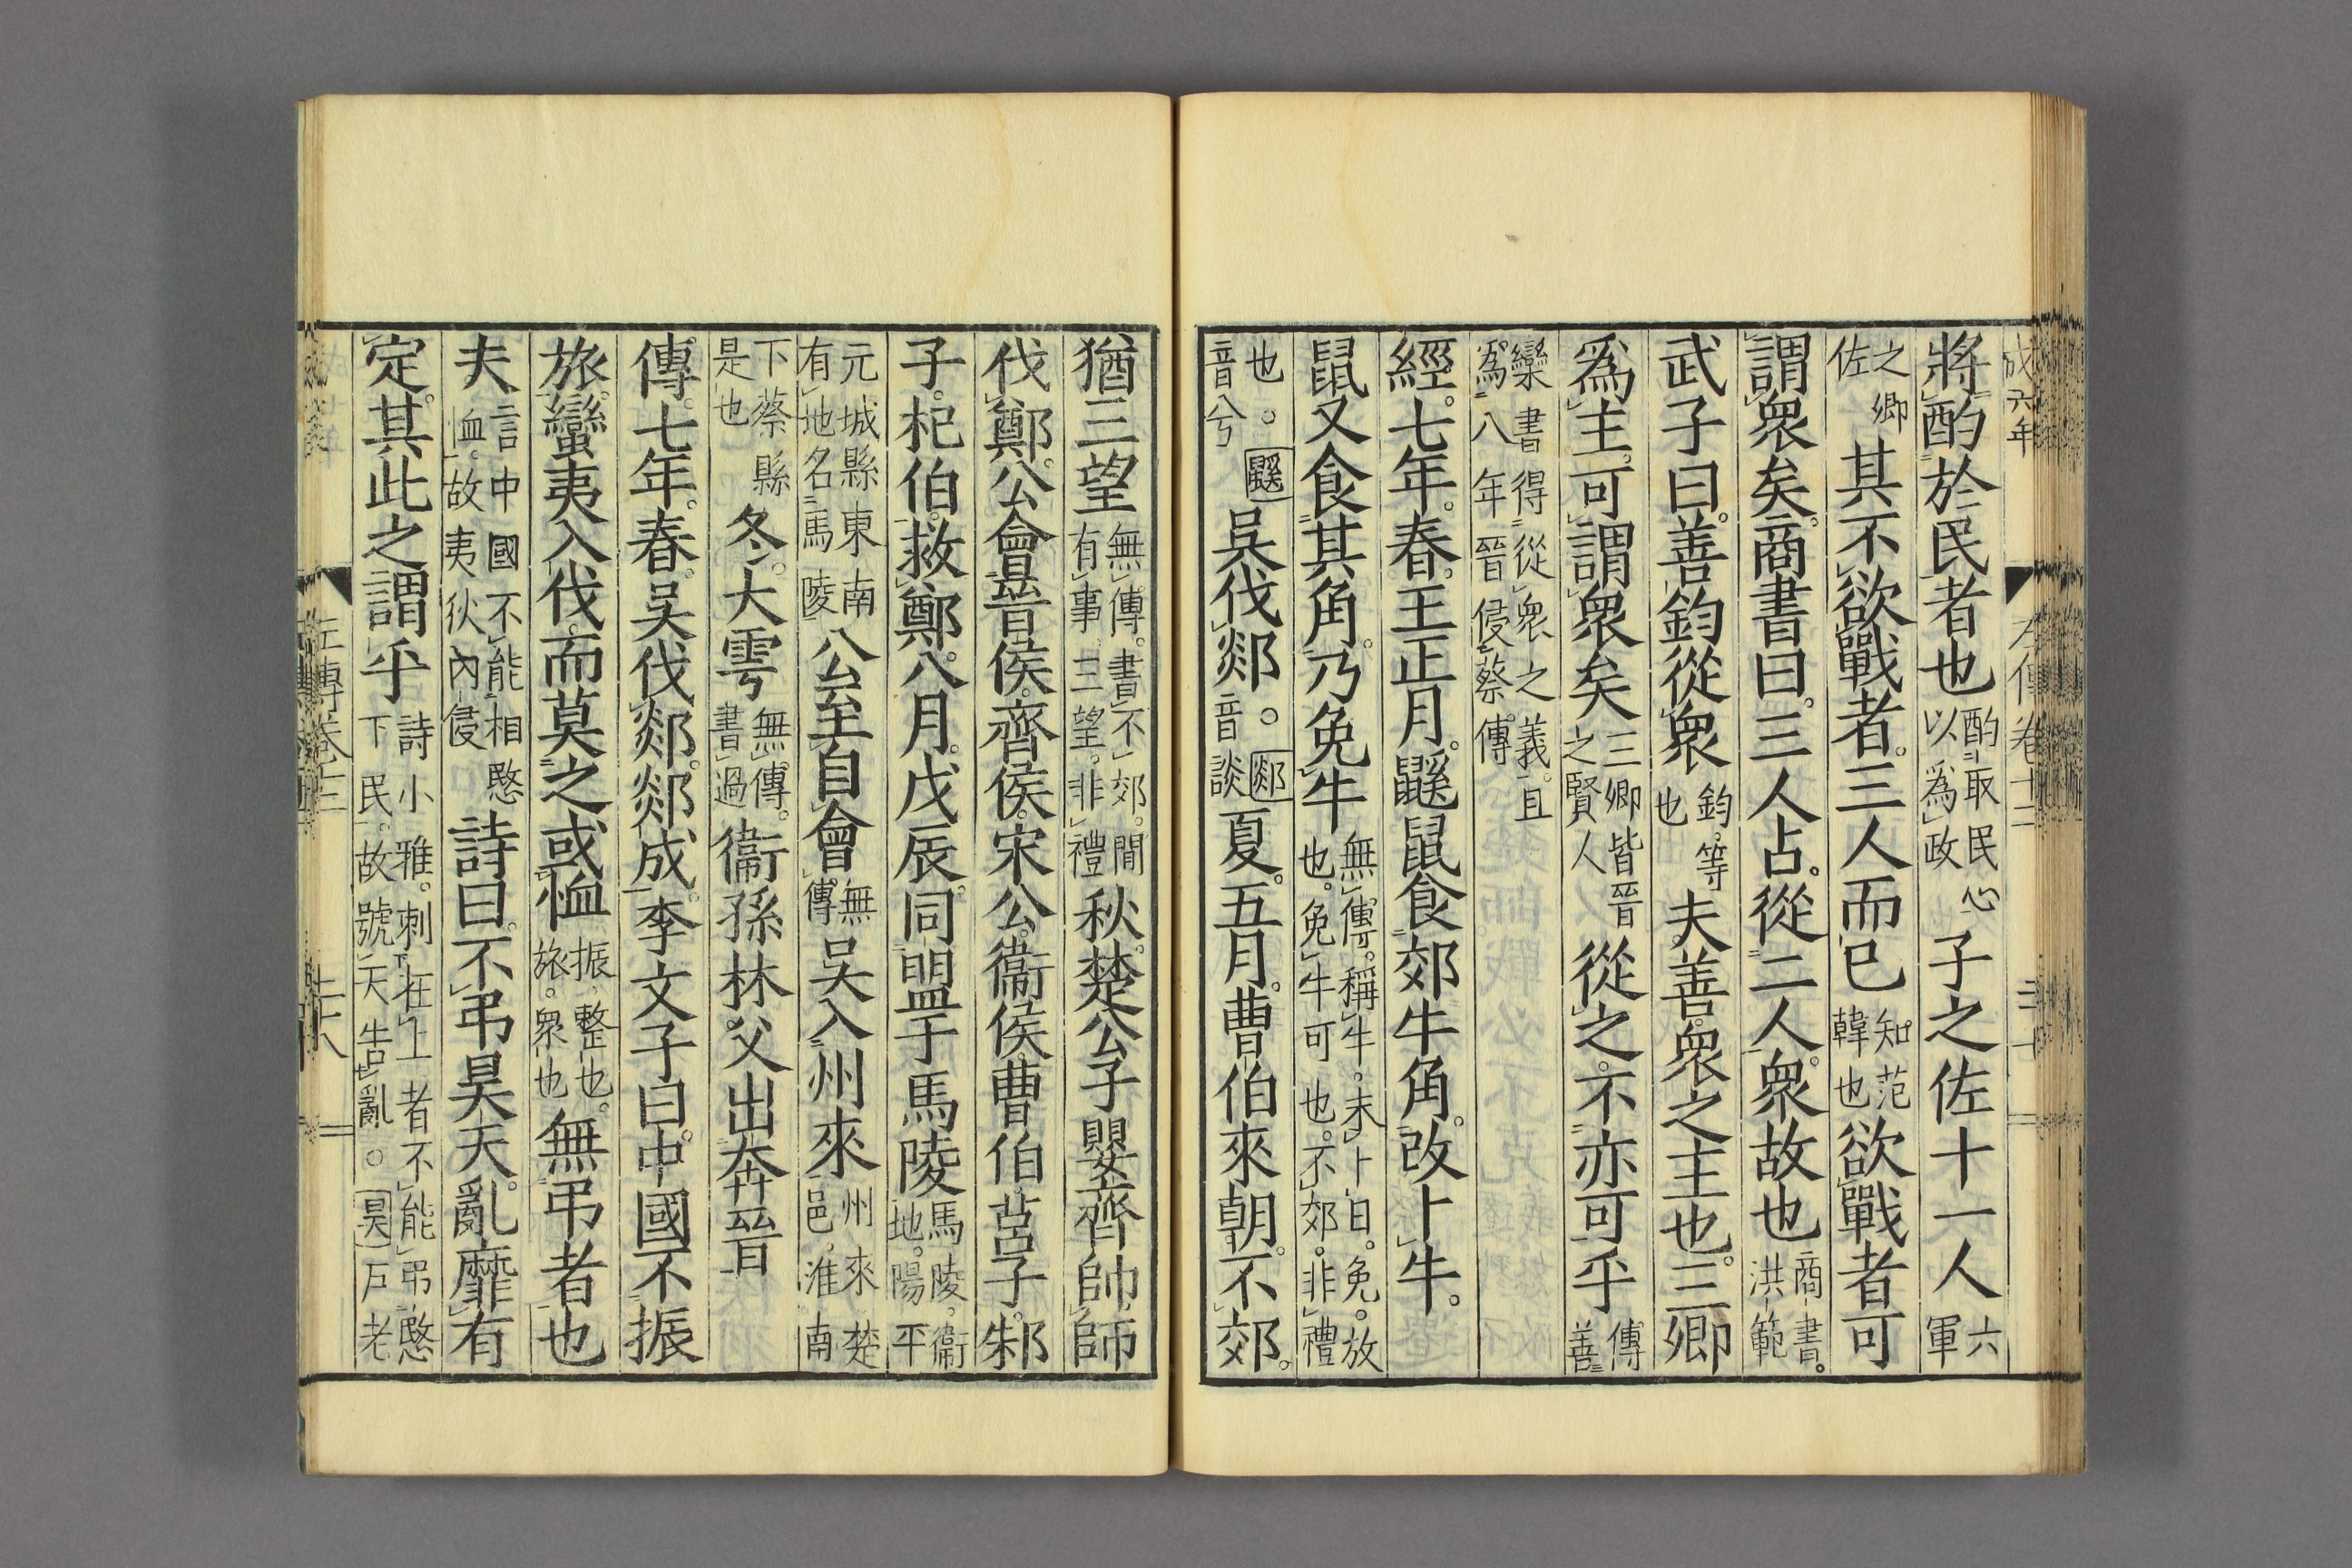 成六年
左傳卷十二
將酌於民者也酌取民心以爲政子之佐十一人六軍
之卿佐其不欲戰者三人而已知范韓也欲戰者可
謂衆矣商書曰三人占從二人衆故也商書洪範
武子曰善鈞從衆鈞等也夫善衆之主也三卿
爲主可謂衆矣三卿皆晉之賢人從之不亦可乎傳善
欒書得從衆之義且爲八年晉侵蔡傳
經七年春王正月鼷鼠食郊牛角改卜牛
鼠又食其角乃免牛無傳稱牛未卜日免放也免牛可也不郊非禮
也音兮鼷吳伐郯音談郯夏五月曹伯來朝不郊
猶三望無傳書不郊間有事三望非禮秋楚公子嬰齊帥師
伐鄭公會晉侯齊侯宋公衞侯曹伯莒子邾
子杞伯救鄭八月戊辰同盟于馬陵馬陵衞地陽平
元城縣東南有地名馬陵公至自會無傳吳入州來州來楚邑淮南
下蔡縣是也冬大雩無傳書過衞孫林父出奔晉
傳七年春吳伐郯郯成季文子曰中國不振
旅蠻夷入伐而莫之或恤振整也旅衆也無弔者也
夫言中國不能相愍恤故夷狄內侵詩曰不弔昊天亂靡有
定其此之謂乎詩小雅刺在上者不能弔愍下民故號天告亂昊戶老